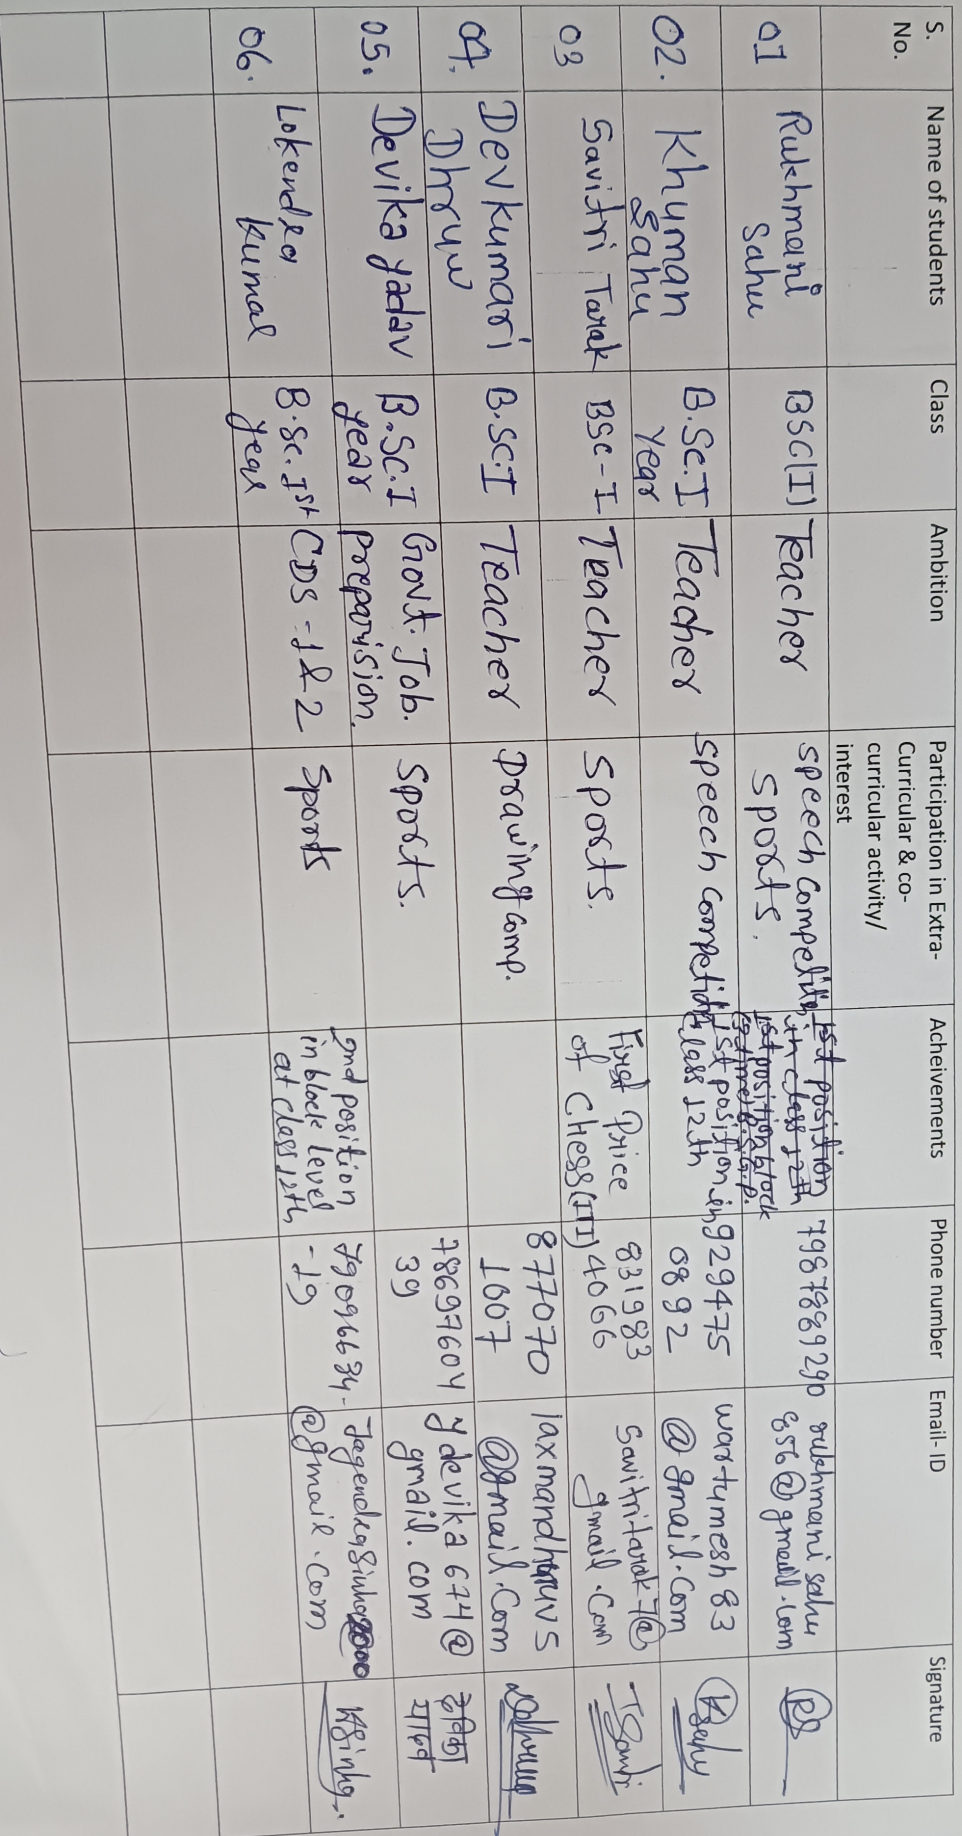 S. No.
Name of students
Class
Ambition
Participation in Extra-
Curricular & co-
curricular activity/
interest
Acheivements
Phone number
Email- ID
Signature
01
Rukhmani
Sahu
BSC(I)
Teacher
speech competition
sports.
1st position
in class 12th
1st position block
7987889290
rukhmanisahu
856@gmail.com
RS
02.
Khuman
Sahu
B.Sc.I
Year
Teacher
speech competition
1st position in
class 12th
929475
0892
wartumesh83
@gmail.com
Ksahu
03
Savitri Tarak
BSc-I
Teacher
Sports.
First Price
of Chess(III)
831983
4066
Savitritarak7@
gmail.com
04.
Devkumari
Dhruw
B.Sc.I
Teacher
Drawing comp.
877070
1607
laxmandhruv5
@gmail.com
05.
Devika yadav
B.Sc.I
year
Govt. Job.
preparision.
Sports.
78697604
39
ydevika674@
gmail.com
देविका
यादव
06.
Lokendra
Kumar
B.Sc. Ist
year
CDS -1&2
Sports
2nd position
in block level
at class 12th
79096634-
-19
@gmail.com
Ksinha